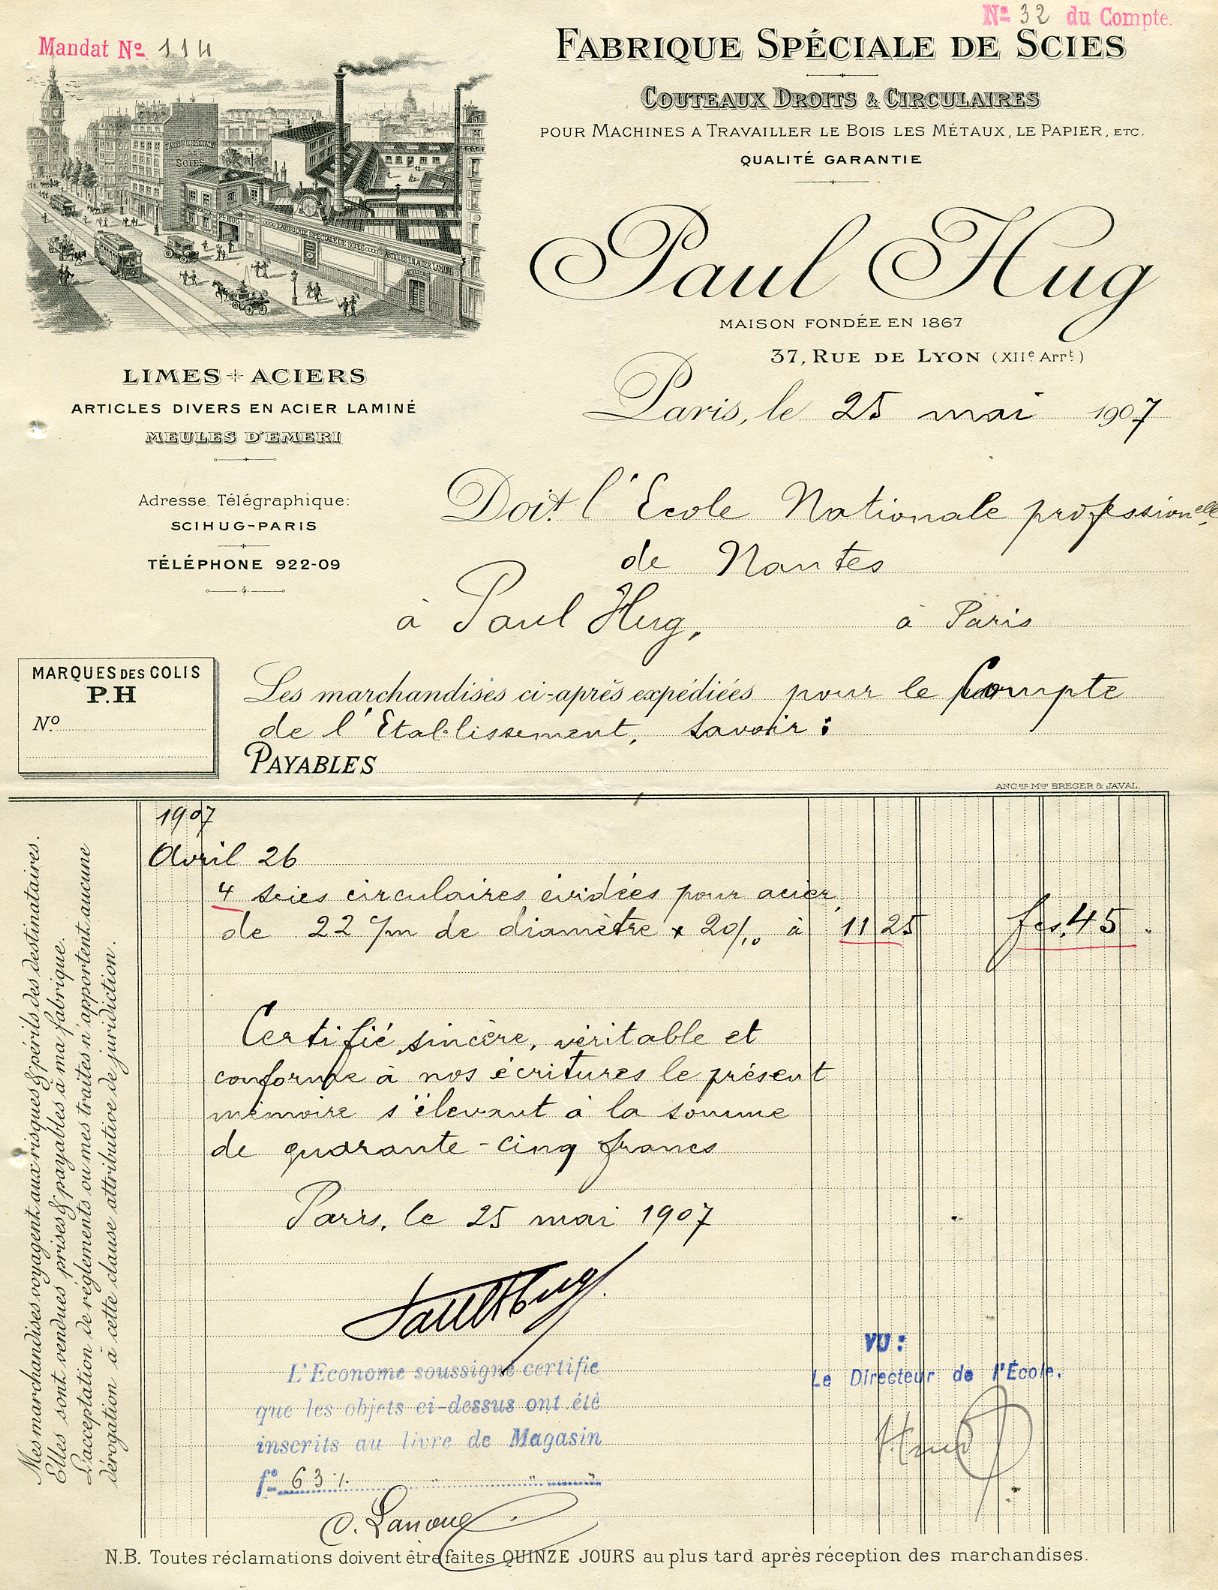 Mandat No. 114
No 32 du Compte.
FABRIQUE SPÉCIALE DE SCIES
COUTEAUX DROITS & CIRCULAIRES
POUR MACHINES A TRAVAILLER LE BOIS LES MÉTAUX, LE PAPIER, ETC.
QUALITÉ GARANTIE
Paul Hug
MAISON FONDÉE EN 1867
37, RUE DE LYON (XIIe Arrt)
SCIES
LIMES ACIERS
ARTICLES DIVERS EN ACIER LAMINÉ
MEULES D'EMERI
Adresse Télégraphique:
SCIHUG-PARIS
TÉLÉPHONE 922-09
Paris, le 25 mai 1907
Doit l'Ecole Nationale professionelle
de Nantes
à Paul Hug, à Paris
MARQUES DES COLIS
P.H
No.
Les marchandises ci-après expédiées pour le Compte
de l'Etablissement, savoir :
PAYABLES
ANCNES MON BREGER & JAVAL
1907
Avril 26
4 scies circulaires évidées pour acier,
de 22 c/m de diamètre x 20/10 à 11 25 fcs. 45.
Certifié sincère, véritable et
conforme à nos écritures le présent
mémoire s'élevant à la somme
de quarante-cinq francs
Paris, le 25 mai 1907
Paul Hug
L'Econome soussigné certifie
que les objets ci-dessus ont été
inscrits au livre de Magasin
fo 63
VU :
Le Directeur de l'École.
Mes marchandises voyagent aux risques & périls des destinataires.
Elles sont vendues prises & payables à ma fabrique.
L'acceptation de règlements ou mes traites n'apportent aucune
dérogation à cette clause attributive de juridiction.
N.B. Toutes réclamations doivent être faites QUINZE JOURS au plus tard après réception des marchandises.